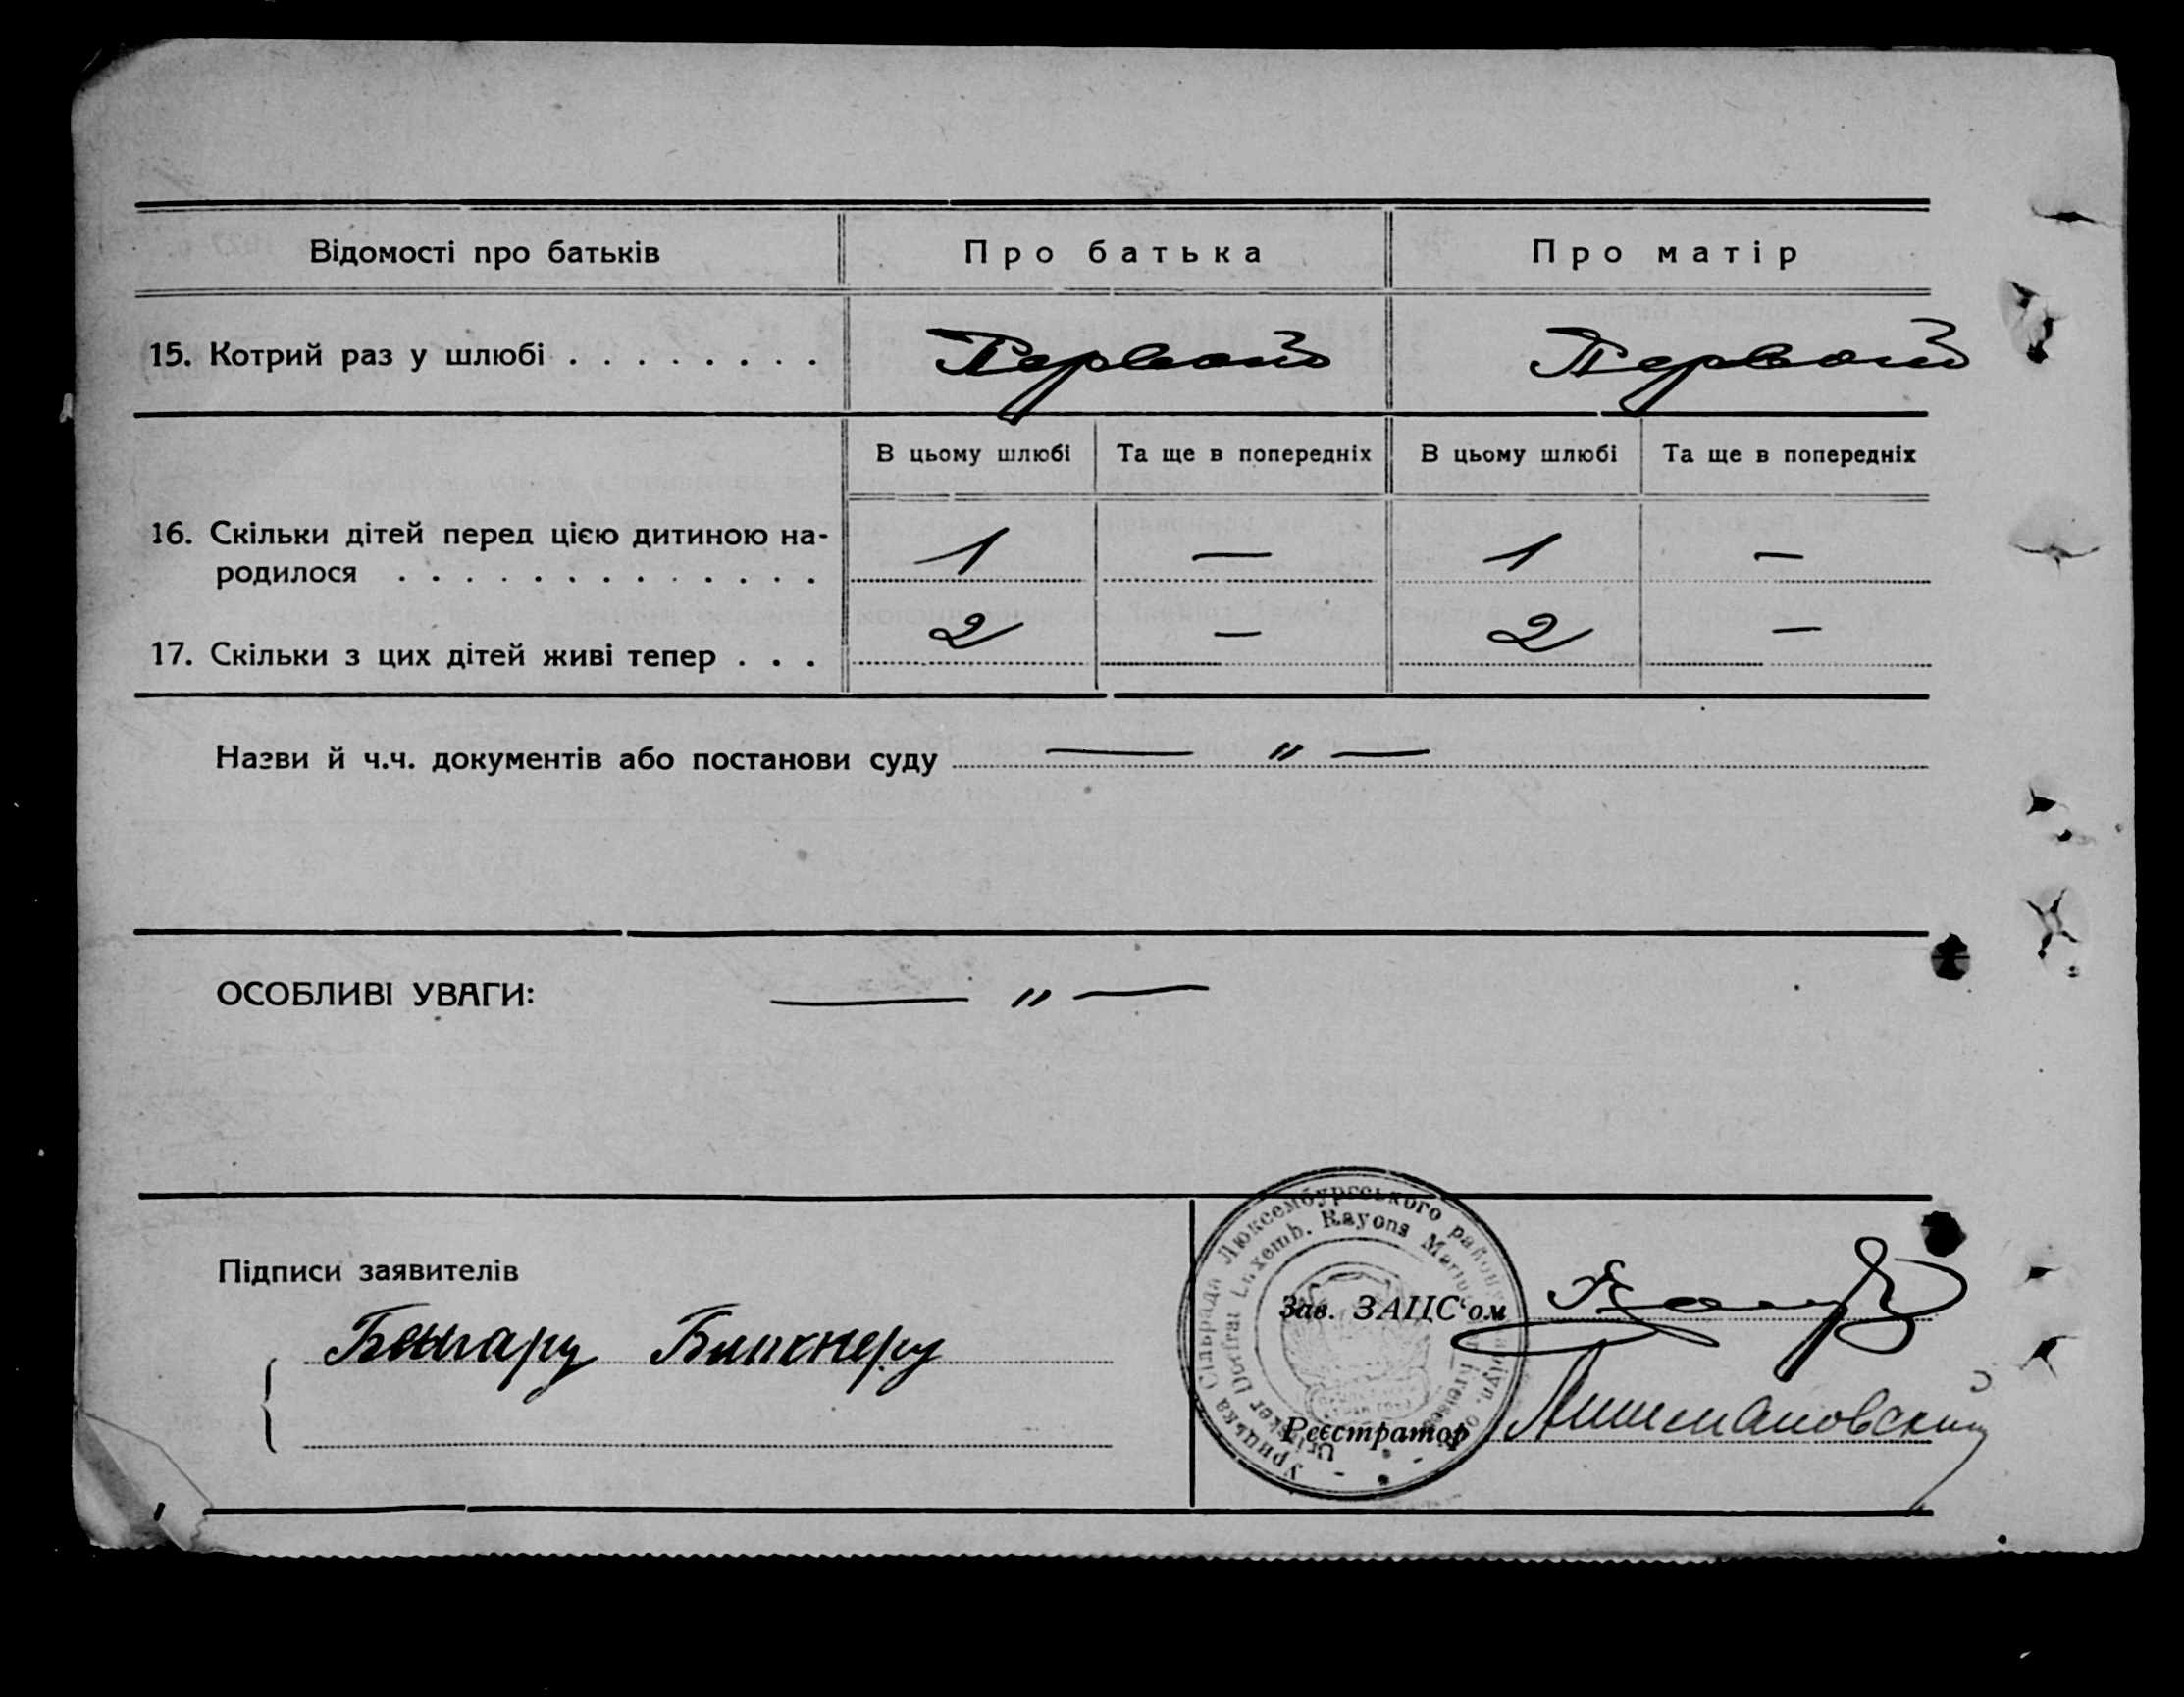 Відомості про батьків
Про батька
Про матір
15. Котрий раз у шлюбі . . . . . . . .
Первой
Первой
В цьому шлюбі
Та ще в попередніх
В цьому шлюбі
Та ще в попередніх
16. Скільки дітей перед цією дитиною на-
родилося . . . . . . . . . . . . .
1 — 1 —
17. Скільки з цих дітей живі тепер . . .
2 — 2 —
Назви й ч.ч. документів або постанови суду — „ —
ОСОБЛИВІ УВАГИ: — „ —
Підписи заявителів
Урицька Сільрада Люксембургського район
Luxemb. Rayons
Зав. ЗАЦС'ом
Реєстратор